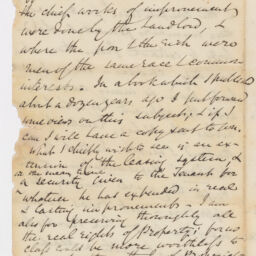 the chief works of improvement
were done by the landlord, &
where the poor & the rich were
men of the same race & common
interests. In a book which I published
about a dozen years ago I put forward
some views on this subject, & if I
can I will have a copy sent to you.
What I chiefly wish to see is an ex-
tension of the leasing system, &
a security given to the Tenant for
whatever he has expended in real
& lasting improvements - I am
also for preserving thoroughly all
the real rights of Property; for no
class could be more worthless to